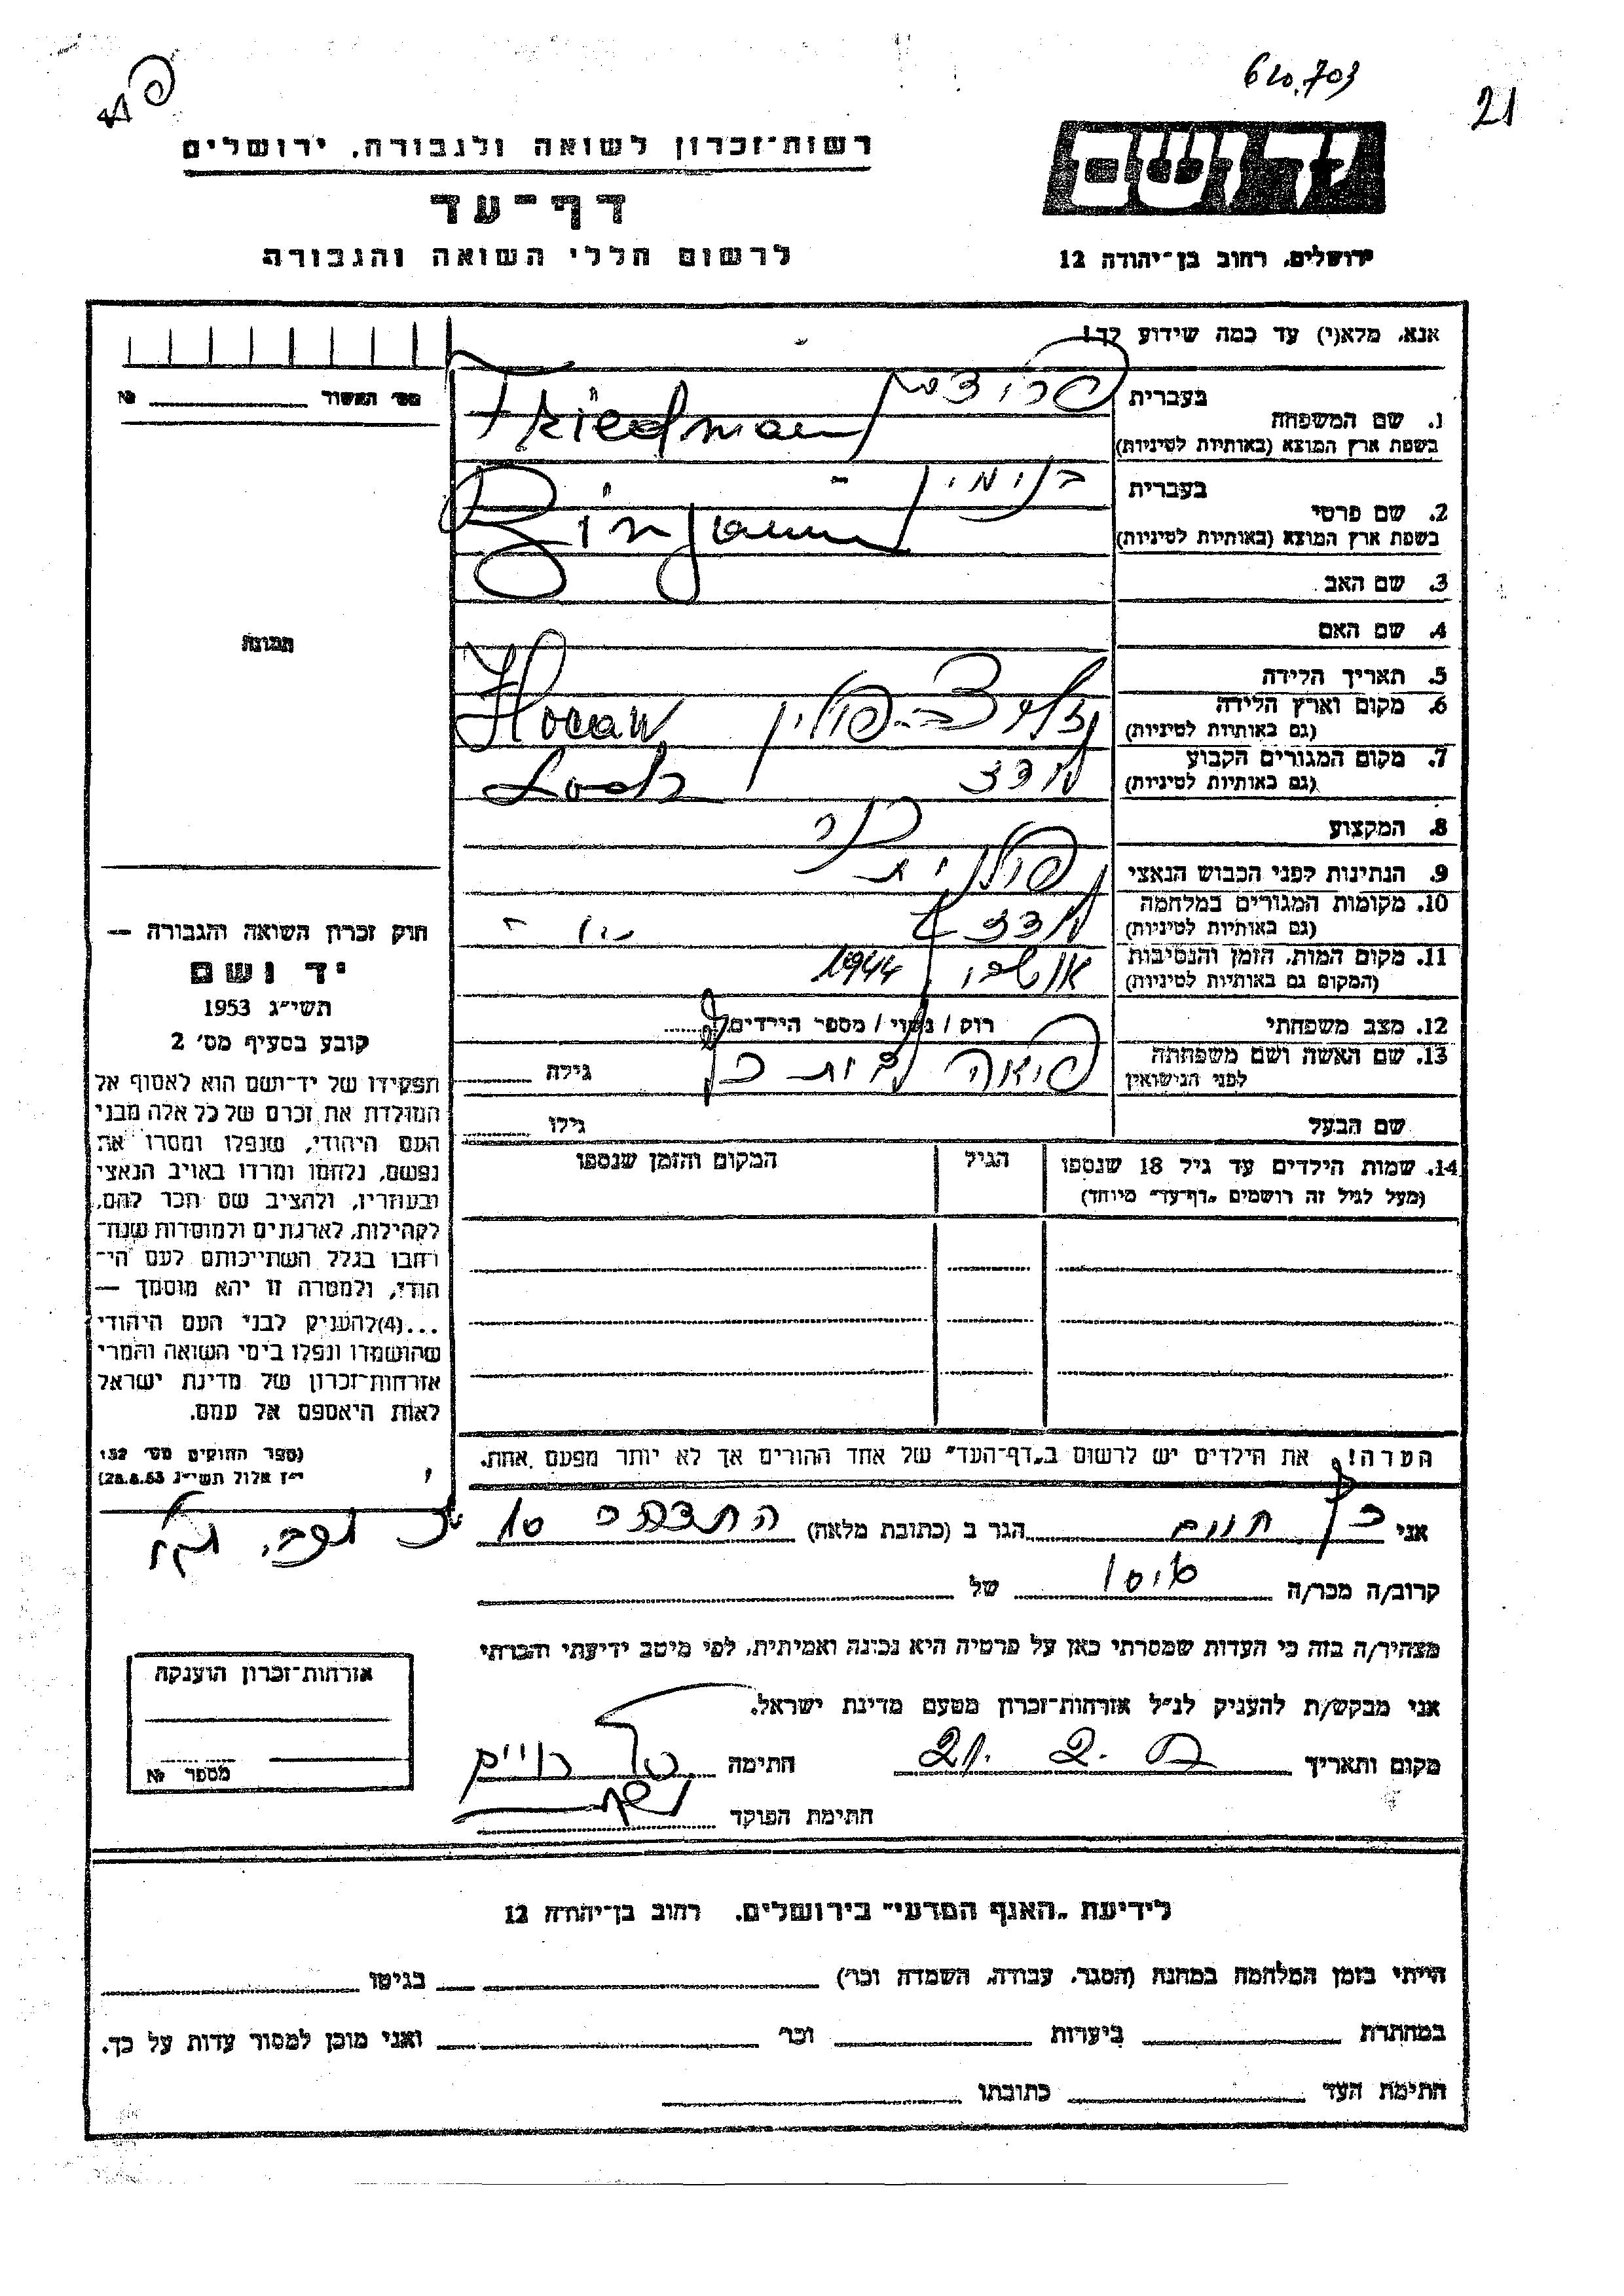 610,703
21
רשות־זכרון לשואה ולגבורה, ירושלים
דף־עד
לרשום חללי השואה והגבורה
יד ושם
ירושלים, רחוב בן־יהודה 12
אנא, מלא(י) עד כמה שידוע לך!
מס' האשור №
1. שם המשפחה
בעברית פרידמן
בשפת ארץ המוצא (באותיות לטיניות) Friedman
2. שם פרטי
בעברית בנימין
בשפת ארץ המוצא (באותיות לטיניות) Binjamin
3. שם האב
4. שם האם
תמונה
5. תאריך הלידה
6. מקום וארץ הלידה
(גם באותיות לטיניות) פולין
7. מקום המגורים הקבוע
(גם באותיות לטיניות) לודז
8. המקצוע
9. הנתינות לפני הכבוש הנאצי פולנית
10. מקומות המגורים במלחמה
(גם באותיות לטיניות) לודז
11. מקום המות, הזמן והנסיבות
(המקום גם באותיות לטיניות) 1944
12. מצב משפחתי רוק / נשוי / מספר הילדים
13. שם האשה ושם משפחתה
לפני הנישואין גילה
שם הבעל גילו
14. שמות הילדים עד גיל 18 שנספו הגיל המקום והזמן שנספו
(מעל לגיל זה רושמים "דף־עד" מיוחד)
הערה! את הילדים יש לרשום ב"דף־העד" של אחד ההורים אך לא יותר מפעם אחת.
חוק זכרון השואה והגבורה —
יד ושם
תשי"ג 1953
קובע בסעיף מס' 2
תפקידו של יד־ושם הוא לאסוף אל
המולדת את זכרם של כל אלה מבני
העם היהודי, שנפלו ומסרו את
נפשם, נלחמו ומרדו באויב הנאצי
ובעוזריו, ולהציב שם וזכר להם,
לקהילות, לארגונים ולמוסדות שנח־
רבו בגלל השתייכותם לעם הי־
הודי, ולמטרה זו יהא מוסמך —
...(4)להעניק לבני העם היהודי
שהושמדו ונפלו בימי השואה והמרי
אזרחות־זכרון של מדינת ישראל
לאות היאספם אל עמם.
(ספר החוקים מס' 132
י"ז אלול תשי"ג 28.8.53)
אני חיים הגר ב (כתובת מלאה)
קרוב/ה מכר/ה גיסו של
מצהיר/ה בזה כי העדות שמסרתי כאן על פרטיה היא נכונה ואמיתית, לפי מיטב ידיעתי והכרתי
אני מבקש/ת להעניק לנ"ל אזרחות־זכרון מטעם מדינת ישראל.
מקום ותאריך חתימה
חתימת הפוקד
אזרחות־זכרון הוענקה
מספר №
לידיעת "האגף המדעי" בירושלים, רחוב בן־יהודה 12
הייתי בזמן המלחמה במחנה (הסגר, עבודה, השמדה וכו') בגיטו
במחתרת ביערות וכו' ואני מוכן למסור עדות על כך.
חתימת העד כתובתו